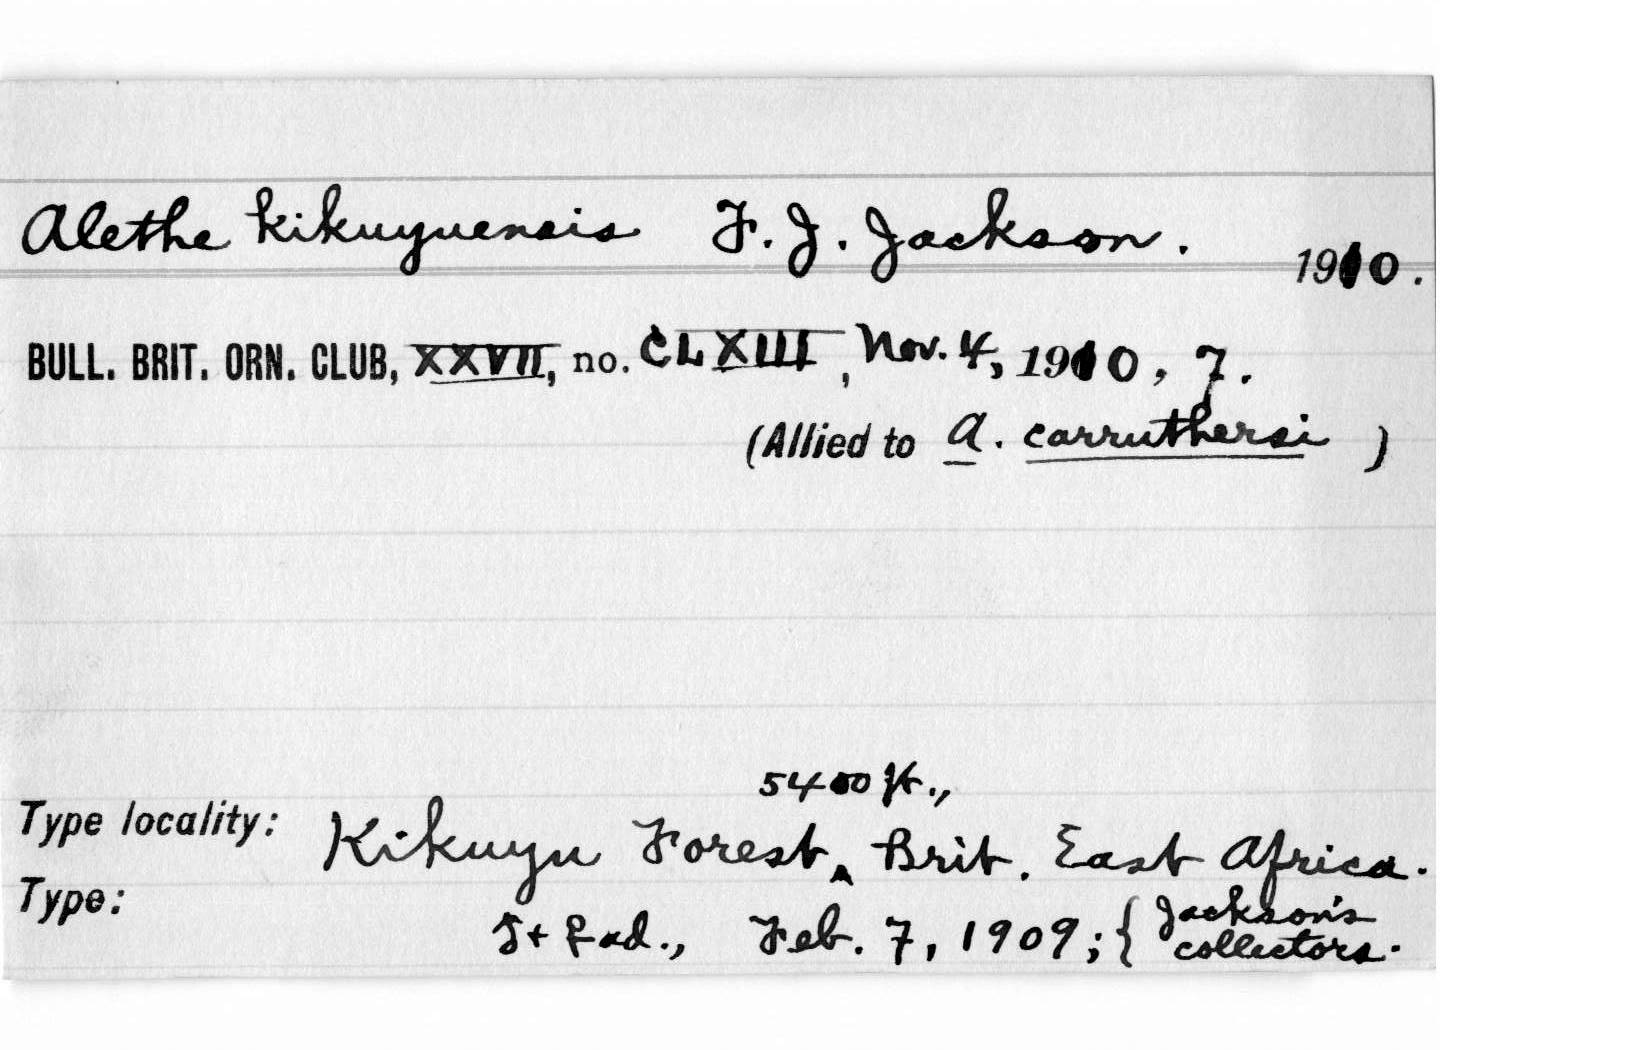 Alethe kikuyuensis F. J. Jackson. 1910.
BULL. BRIT. ORN. CLUB, XXVII, no. CLXIII, Nov. 4, 1910, 7.
(Allied to A. carruthersi )
5400 ft.,
Type locality: Kikuyu Forest, Brit. East Africa.
Type: ♂ + ♀ ad., Feb. 7, 1909; { Jackson's
collectors.